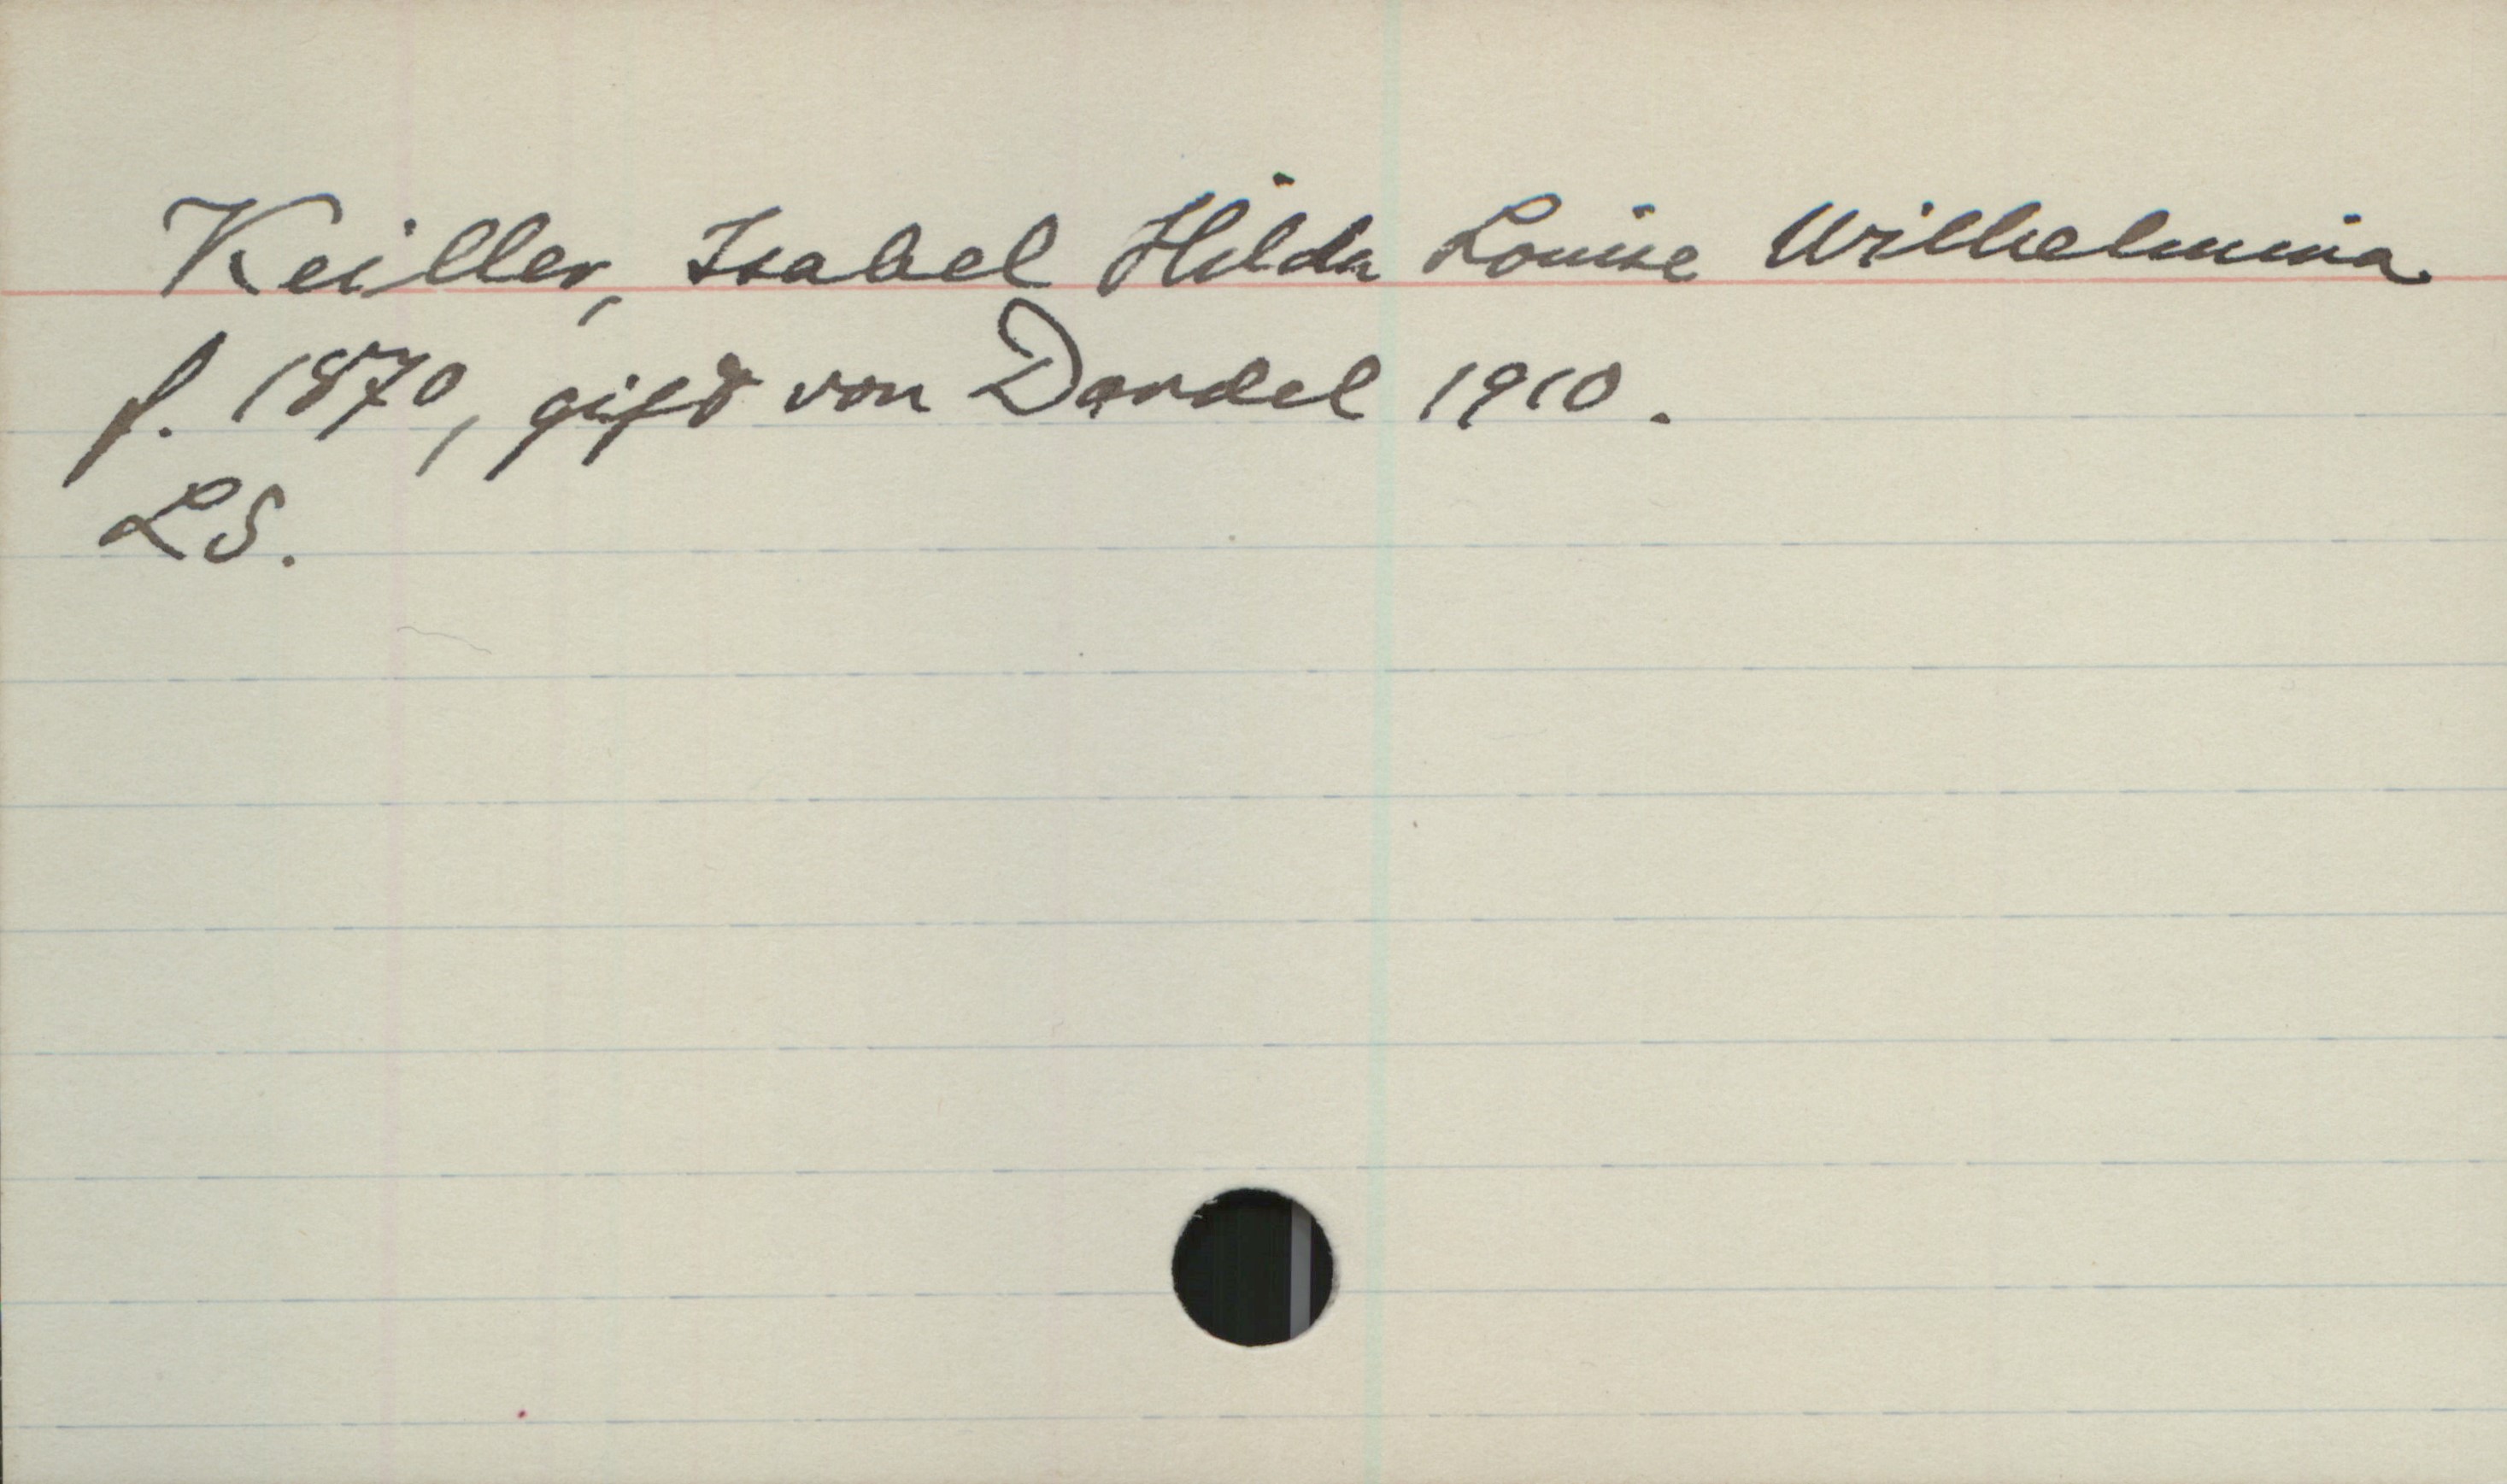 Keiller, Isabel Hilda Louise Wilhelmina
f. 1870, gift von Dardel 1910.
LS.